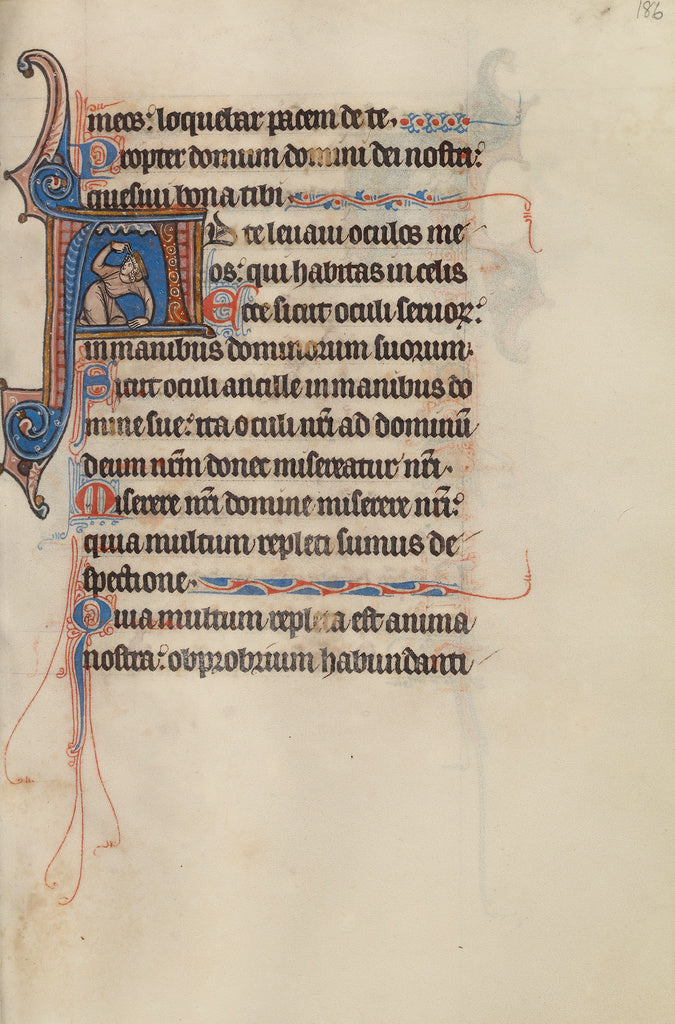 186
meos: loquebar pacem de te.
Propter domum domini dei nostri:
quesiui bona tibi.
Ad te leuaui oculos me
os: qui habitas in celis
Ecce sicut oculi seruoꝝ:
in manibus dominorum suorum.
Sicut oculi ancille in manibus do
mine sue: ita oculi nr̄i ad dominū
deum nr̄m donec misereatur nr̄i.
Miserere nr̄i domine miserere nr̄i:
quia multum repleti sumus de
spectione.
Quia multum repleta est anima
nostra: obprobrium habundanti